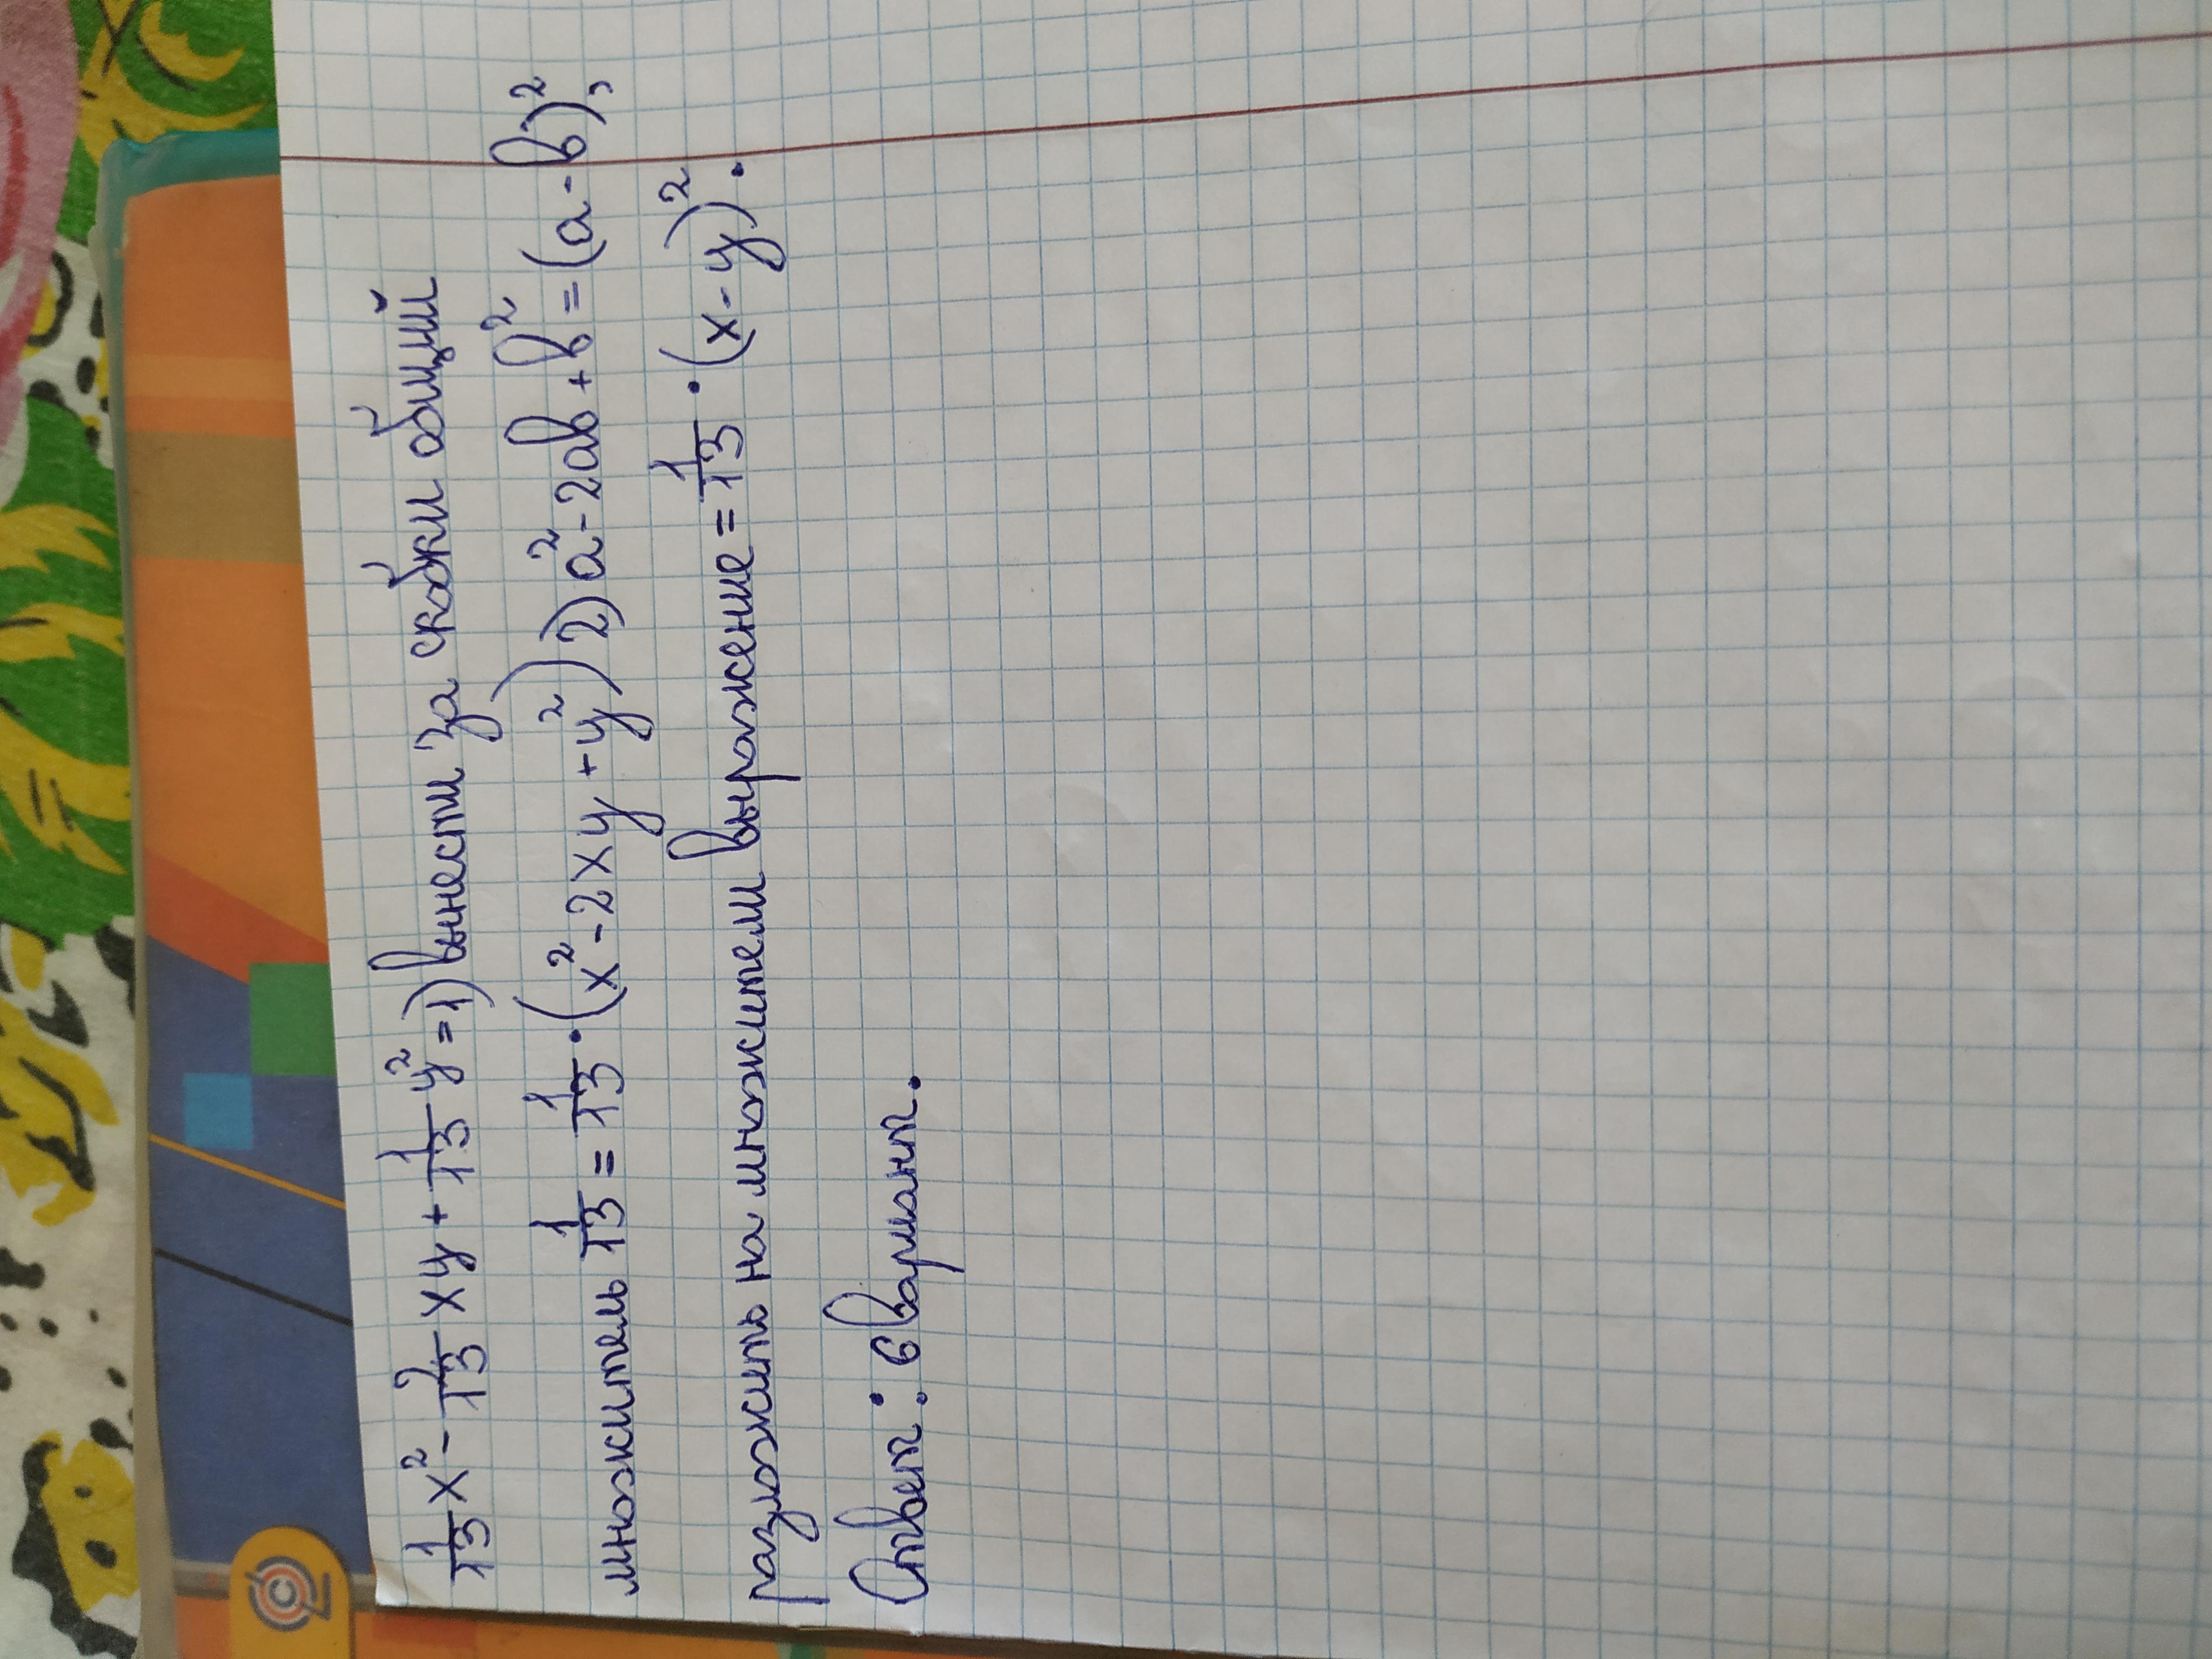 1/13 x² - 2/13 xy + 1/13 y² = 1) вынести за скобки общий
множитель 1/13 = 1/13 · (x² - 2xy + y²) 2) a² - 2ав + в² = (а - в)²,
разложить на множители выражение = 1/13 · (x - y)².
Ответ: 6 вариант.